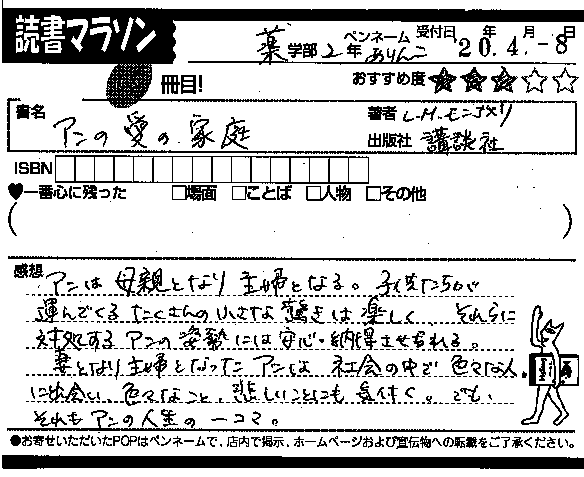 読書マラソン
冊目!
薬学部2年 ペンネーム ありんこ 受付日 20年4.月-8日
おすすめ度 ★★★☆☆
書名 アンの愛の家庭
著者 L.M.モンゴメリ
出版社 講談社
ISBN
♥一番心に残った □場面 □ことば □人物 □その他
( )
感想 アンは母親となり主婦となる。子供たちが
運んでくるたくさんの小さな驚きは楽しく、それらに
対処するアンの姿勢には安心・納得させられる。
妻となり主婦となったアンは社会の中で色々な人
に出会い、色々なこと、悲しいことにも気付く。でも、
それもアンの人生の一コマ。
●お寄せいただいたPOPはペンネームで、店内で掲示、ホームページおよび宣伝物への転載をご了承ください。